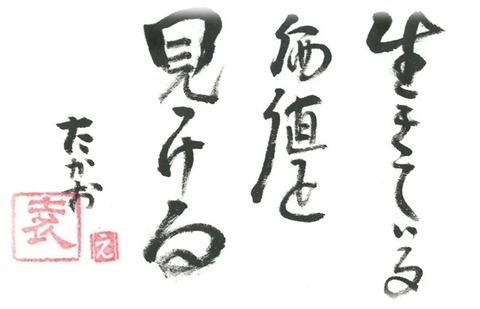 生きている
価値を
見ける
たかお